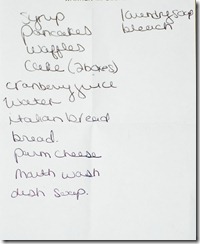 syrup
pancakes
waffles
Cake (2 boxes)
cranberry juice
Water
italian bread
bread.
parm cheese
mouth wash
dish soap.
laundry soap
bleach